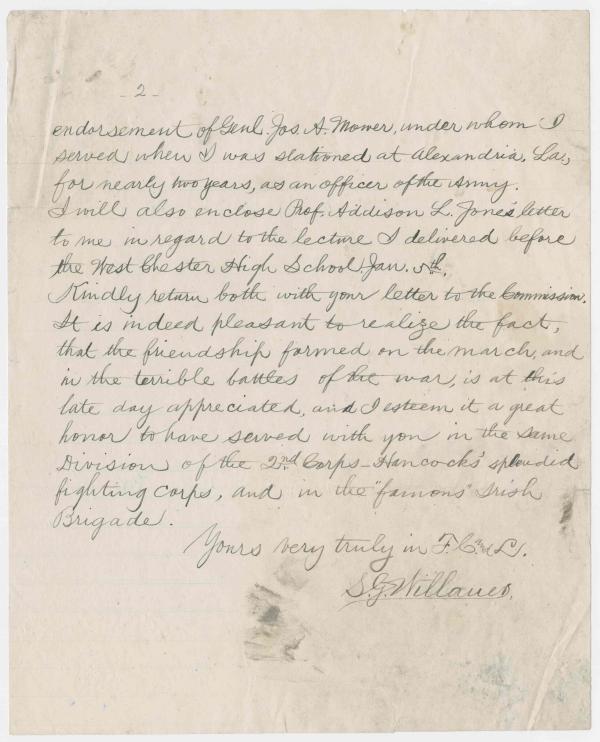 - 2 -
endorsement of Genl. Jos. A. Mower, under whom I
served when I was stationed at Alexandria, La.,
for nearly two years, as an officer of the Army.
I will also enclose Prof. Addison L. Jones's letter
to me in regard to the lecture I delivered before
the West Chester High School Jan. 5th.
Kindly return both with your letter to the Commission.
It is indeed pleasant to realize the fact,
that the friendship formed on the march, and
in the terrible battles of the war, is at this
late day appreciated, and I esteem it a great
honor to have served with you in the same
Division of the 2nd Corps - Hancock's splendid
fighting corps, and in the "famous" Irish
Brigade.
Yours very truly in F. C. and L.
S. G. Willauer.